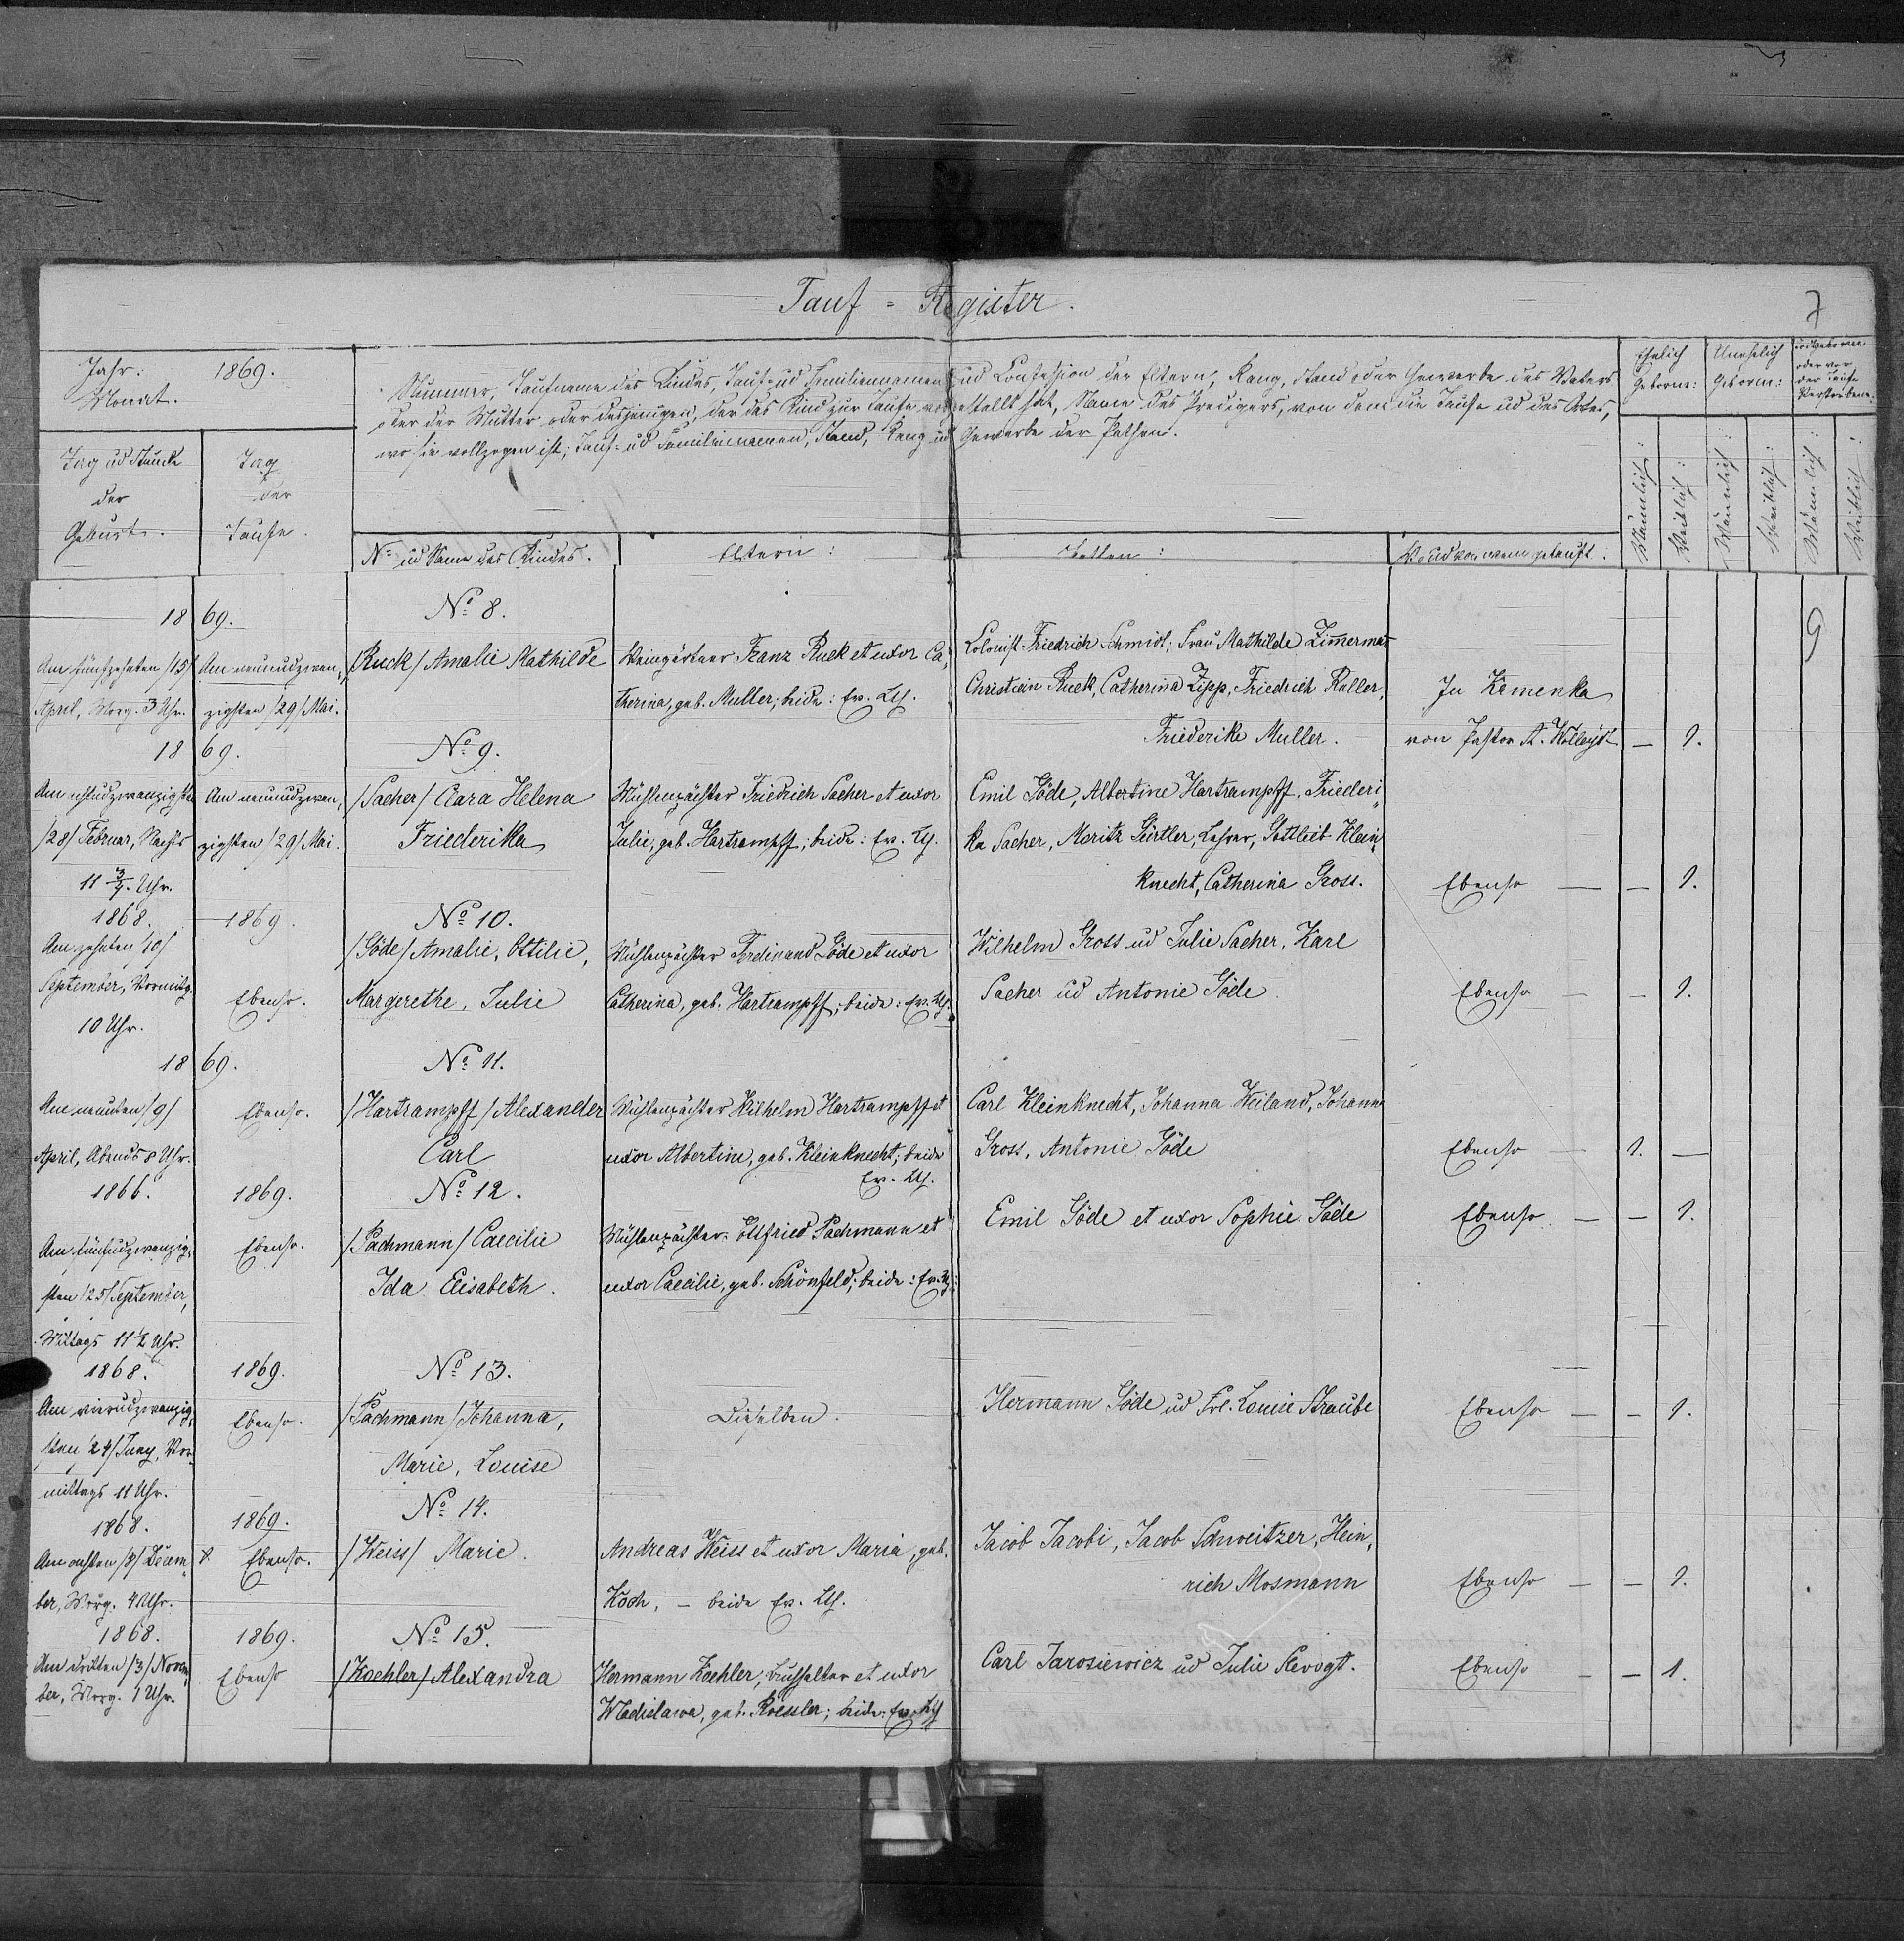 Tauf = Register.
7
Jahr. 1869.
Monat.
Tag ud Stunde
der
Geburt.
Tag
der
Taufe.
Nummer, Taufname des Kindes, Tauf- ud Familiennamen ud Confession der Eltern, Rang, Stand oder Gewerbe des Vaters
oder der Mutter oder desjenigen, der das Kind zur Taufe vorgestellt hat, Name des Predigers, von dem die Taufe ud des Ortes,
wo sie vollzogen ist; Tauf- ud Familiennamen, Stand, Rang ud Gewerbe der Pathen.
No ud Name des Kindes.
Eltern:
Pathen:
Wo ud von wem getauft.
Ehelich
Geborne:
Unehelich
Geborne:
Todtgeborne
oder vor
der Taufe
Verstorbene.
Männlich:
Weiblich:
Männlich:
Weiblich:
Männlich:
Weiblich:
1869.
Am fünfzehnten /15/
April, Morg. 3 Uhr.
Am neunudzwan„
zigsten /29/ Mai.
No 8.
/Ruck/ Amalie Mathilde
Weingärtner Franz Ruck et uxor Ca„
therina, geb. Muller; beide: Ev. Lth.
Colonist Friedrich Schmidt; Frau Mathilde Zimmermann
Christian Ruck, Catherina Zipp, Friedrich Roller,
Friederike Muller.
In Kamenka
von Pastor A. — 1.
9
1869.
Am achtudzwanzigsten
/28/ Februar, Nachts
11 3/4. Uhr.
Am neunudzwan„
zigsten /29/ Mai.
No 9.
/Sacher/ Clara Helena
Friederika
Mühlenpächter Friedrich Sacher et uxor
Julie, geb. Hartrampff; beide: Ev. Lth.
Emil Göde, Albertine Hartrampff, Friederi„
ka Sacher, Moritz Gürtler, Lehrer, Gottlieb Klein„
knecht, Catherina Gross.
Ebenso — — 1.
1868.
Am zehnten /10/
September, Vormittg.
10 Uhr.
1869.
Ebenso.
No 10.
/Göde/ Amalie, Ottilie,
Margarethe, Julie
Mühlenpächter Ferdinand Göde et uxor
Catherina, geb. Hartrampff; beide: Ev. Lth.
Wilhelm Gross ud Julie Sacher, Karl
Sacher ud Antonie Göde
Ebenso — — 1.
1869.
Am neunten /9/
April, Abends 8 Uhr.
Ebenso.
No 11.
/Hartrampff/ Alexander
Carl
Mühlenpächter Wilhelm Hartrampff et
uxor Albertine, geb. Kleinknecht; beide
Ev. Lth.
Carl Kleinknecht, Johanna Weiland, Johann
Gross, Antonie Göde
Ebenso — 1. —
1866.
Am fünfudzwanzig„
sten /25/ September,
Mittags 11 1/2 Uhr.
1869.
Ebenso.
No 12.
/Pachmann/ Caecilie
Ida Elisabeth.
Mühlenpächter Ottfried Pachmann et
uxor Caecilie, geb. Schönfeld; beide: Ev. Lth.
Emil Göde et uxor Sophie Göde
Ebenso — — 1.
1868.
Am vierudzwanzig„
sten /24/ Juny, Vor„
mittags 11 Uhr.
1869.
Ebenso.
No 13.
/Pachmann/ Johanna,
Marie, Louise
Dieselben.
Hermann Göde ud Frl. Louise Straube
Ebenso — — 1.
1868.
Am achten /8/ Decem„
ber, Morg. 4 Uhr.
1869.
x Ebenso.
No 14.
/Weiss/ Marie.
Andreas Weiss et uxor Maria, geb.
Koch, — beide Ev. Lth.
Jacob Jacobi, Jacob Schweitzer, Hein„
rich Mosmann
Ebenso — — 1.
1868.
Am dritten /3/ Novem„
ber, Morg. 1 Uhr.
1869.
Ebenso
No 15.
/Koehler/ Alexandra
Hermann Koehler, Buchhalter et uxor
Wladislawa, geb. Roessler; beide: Ev. Lth
Carl Jarosiewicz ud Julie Slevogt.
Ebenso — — 1.